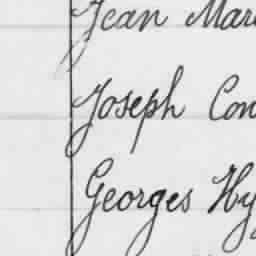 Jean Mar
Joseph Con
Georges Hy